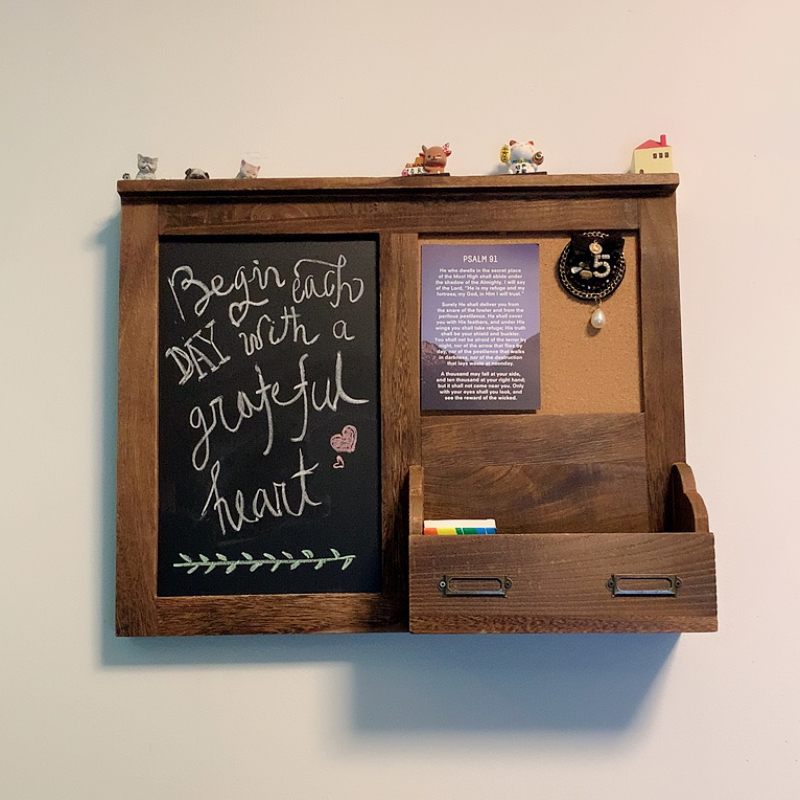 Begin each
DAY with a
grateful
heart
PSALM 91
He who dwells in the secret place
of the Most High shall abide under
the shadow of the Almighty. I will say
of the Lord, "He is my refuge and my
fortress, my God, in Him I will trust."
Surely He shall deliver you from
the snare of the fowler and from the
perilous pestilence. He shall cover
you with His feathers, and under His
wings you shall take refuge; His truth
shall be your shield and buckler.
You shall not be afraid of the terror by
night, nor of the arrow that flies by
day, nor of the pestilence that walks
in darkness, nor of the destruction
that lays waste at noonday.
A thousand may fall at your side,
and ten thousand at your right hand;
but it shall not come near you. Only
with your eyes shall you look, and
see the reward of the wicked.
5